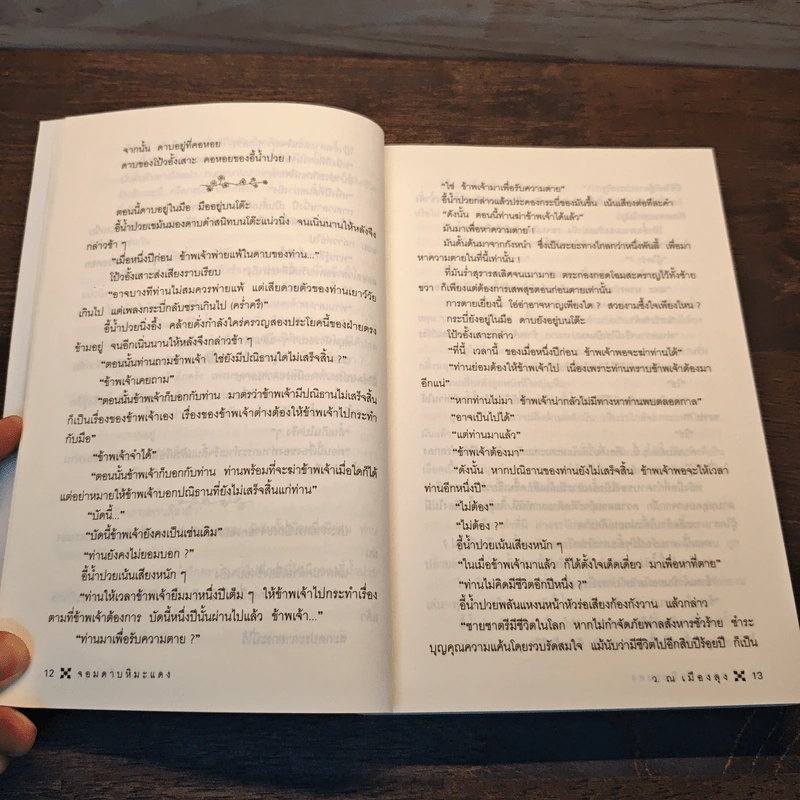 จากนั้น ดาบอยู่ที่คอหอย
ดาบของโป้วอั้งเสาะ คอหอยของอี้น้ำปวย !
ตอนนี้ดาบอยู่ในมือ มืออยู่บนโต๊ะ
อี้น้ำปวยเขม้นมองดาบดำสนิทบนโต๊ะแน่วนิ่ง จนเนิ่นนานให้หลังจึง
กล่าวช้า ๆ
“เมื่อหนึ่งปีก่อน ข้าพเจ้าพ่ายแพ้ในดาบของท่าน...”
โป้วอั้งเสาะส่งเสียงราบเรียบ
“อาจบางทีท่านไม่สมควรพ่ายแพ้ แต่เสียดายตัวของท่านเยาว์วัย
เกินไป แต่เพลงกระบี่กลับชราเกินไป (คร่ำครึ)”
อี้น้ำปวยนิ่งอึ้ง คล้ายดั่งกำลังใคร่ครวญสองประโยคนี้ของฝ่ายตรง
ข้ามอยู่ จนอีกเนิ่นนานให้หลังจึงกล่าวช้า ๆ
“ตอนนั้นท่านถามข้าพเจ้า ใช่ยังมีปณิธานใดไม่เสร็จสิ้น ?”
“ข้าพเจ้าเคยถาม”
“ตอนนั้นข้าพเจ้าบอกกับท่าน มาตรว่าข้าพเจ้ามีปณิธานไม่เสร็จสิ้น
ก็เป็นเรื่องของข้าพเจ้าเอง เรื่องของข้าพเจ้าต่างต้องให้ข้าพเจ้าไปกระทำ
กับมือ”
“ข้าพเจ้าจำได้”
“ตอนนั้นข้าพเจ้าก็บอกกับท่าน ท่านพร้อมที่จะฆ่าข้าพเจ้าเมื่อใดก็ได้
แต่อย่าหมายให้ข้าพเจ้าบอกปณิธานที่ยังไม่เสร็จสิ้นแก่ท่าน”
“บัดนี้...”
“บัดนี้ข้าพเจ้ายังคงเป็นเช่นเดิม”
“ท่านยังคงไม่ยอมบอก ?”
อี้น้ำปวยเน้นเสียงหนัก ๆ
“ท่านให้เวลาข้าพเจ้ายืมมาหนึ่งปีเต็ม ๆ ให้ข้าพเจ้าไปกระทำเรื่อง
ตามที่ข้าพเจ้าต้องการ บัดนี้หนึ่งปีนั้นผ่านไปแล้ว ข้าพเจ้า...”
“ท่านมาเพื่อรับความตาย ?”
12 จอมดาบหิมะแดง
“ใช่ ข้าพเจ้ามาเพื่อรับความตาย”
อี้น้ำปวยกล่าวแล้วประคองกระบี่ของมันขึ้น เน้นเสียงต่อทีละคำ
“ดังนั้น ตอนนี้ท่านฆ่าข้าพเจ้าได้แล้ว”
มันมาเพื่อหาความตาย !
มันดั้นด้นมาจากกังหนำ ซึ่งเป็นระยะทางไกลกว่าหนึ่งพันลี้ เพื่อมา
หาความตายในที่นี้เท่านั้น !
ที่มันร่ำสุรารสเลิศจนเมามาย ตระกองกอดโฉมสะคราญไว้ทั้งซ้าย
ขวา ก็เพียงแต่ต้องการเสพสุขตอนก่อนตายเท่านั้น
การตายเยี่ยงนี้ โอ่อ่าอาจหาญเพียงใด ? สวยงามซึ้งใจเพียงไหน ?
กระบี่ยังอยู่ในมือ ดาบยังอยู่บนโต๊ะ
โป้วอั้งเสาะกล่าว
“ที่นี้ เวลานี้ ของเมื่อหนึ่งปีก่อน ข้าพเจ้าพอจะฆ่าท่านได้”
“ท่านย่อมต้องให้ข้าพเจ้าไป เนื่องเพราะท่านทราบข้าพเจ้าต้องมา
อีกแน่”
“หากท่านไม่มา ข้าพเจ้าน่ากลัวไม่มีทางหาท่านพบตลอดกาล”
“อาจเป็นไปได้”
“แต่ท่านมาแล้ว”
“ข้าพเจ้าต้องมา”
“ดังนั้น หากปณิธานของท่านยังไม่เสร็จสิ้น ข้าพเจ้าพอจะให้เวลา
ท่านอีกหนึ่งปี”
“ไม่ต้อง”
“ไม่ต้อง ?”
อี้น้ำปวยเน้นเสียงหนัก ๆ
“ในเมื่อข้าพเจ้ามาแล้ว ก็ได้ตั้งใจเด็ดเดี่ยว มาเพื่อหาที่ตาย”
“ท่านไม่คิดมีชีวิตอีกปีหนึ่ง ?”
อี้น้ำปวยพลันแหงนหน้าหัวร่อเสียงก้องกังวาน แล้วกล่าว
“ชายชาตรีมีชีวิตในโลก หากไม่กำจัดภัยพาลสังหารชั่วร้าย ชำระ
บุญคุณความแค้นโดยรวบรัดสมใจ แม้นับว่ามีชีวิตไปอีกสิบปีร้อยปี ก็เป็น
ว. ณ เมืองลุง 13